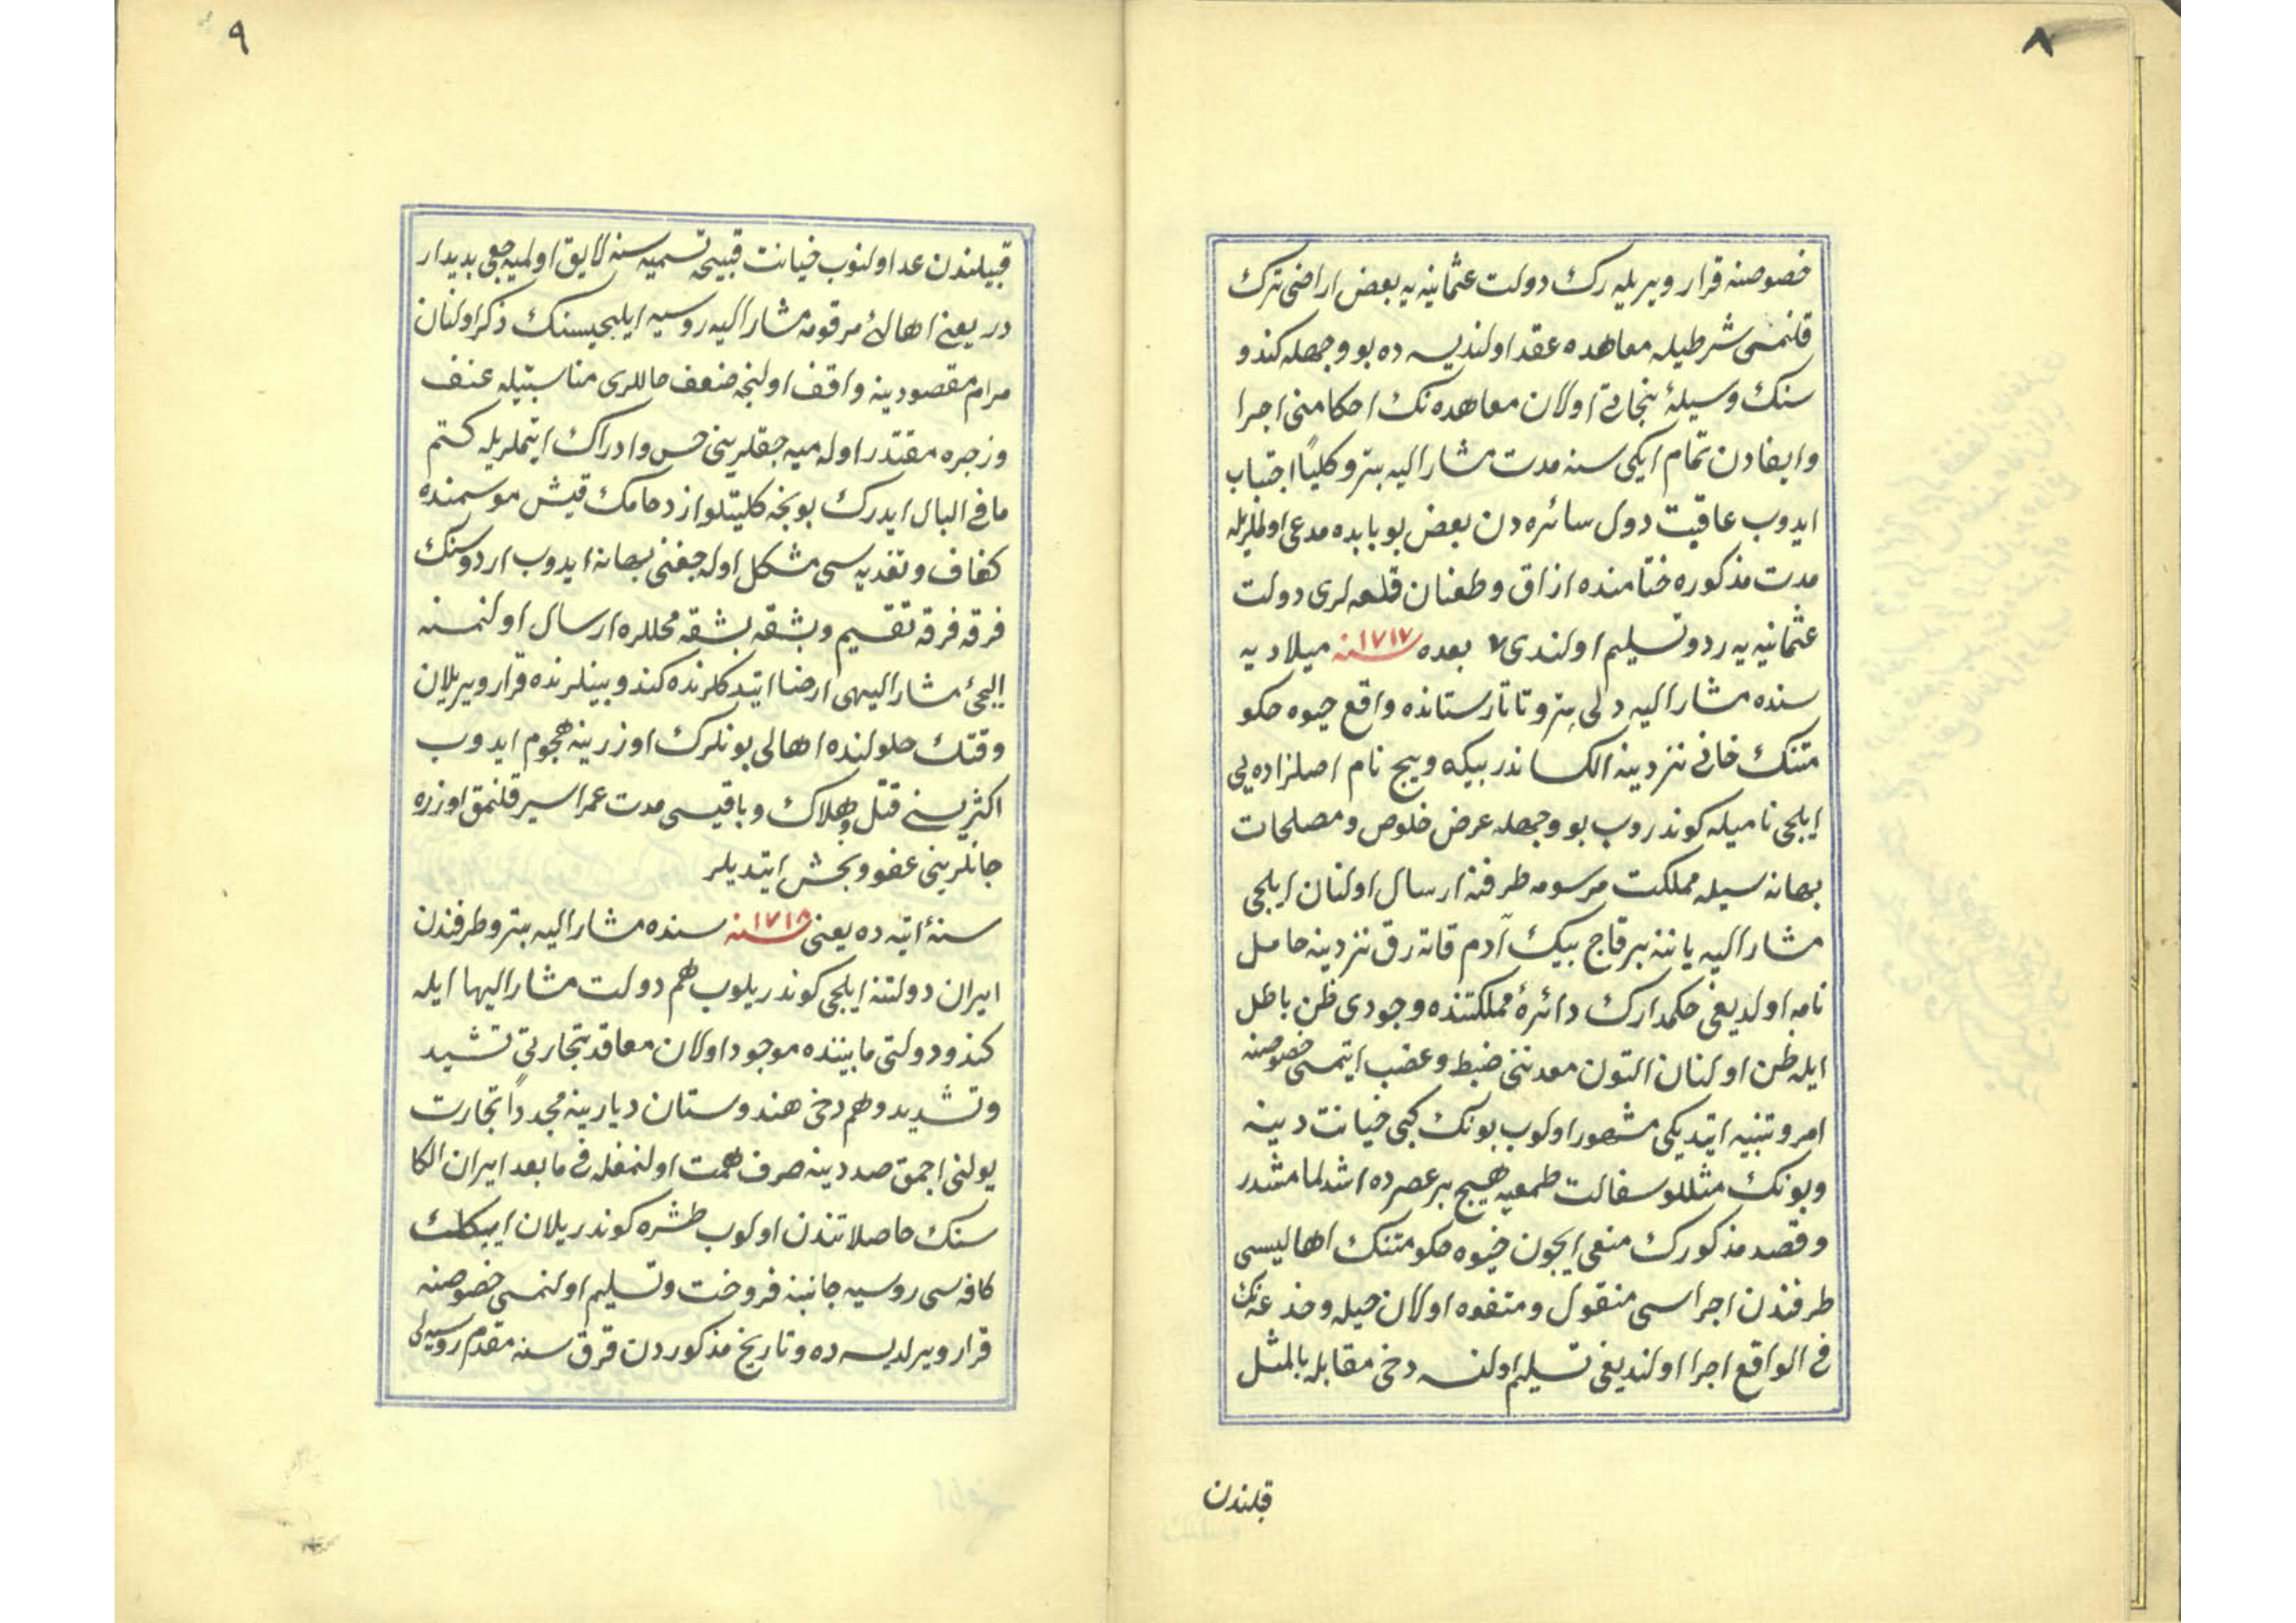 ٨
خصوصنه قرار ويريله رك دولت عثمانيه يه بعض اراضى ترك
قلنمسى شرطيله معاهده عقد اولنديسه ده بو وجهله كندو
سنك وسيلۀ نجاتى اولان معاهده نك احكامنى اجرا
وايفادن تمام ايكى سنه مدت مشار اليه پترو كليًا اجتناب
ايدوب عاقبت دول سائره دن بعض بو بابده مدعى اولملريله
مدت مذكوره ختامنده ازاق وطغنان قلعه لرى دولت
عثمانيه يه رد وتسليم اولندى ٧ بعده سنه ١٧١٧ ميلاديه
سنده مشار اليه دلى پترو تاتارستانده واقع خيوه حكو
متنك خانى نزدينه الكساندر بيكه ويچ نام اصلزاده يى
ايلچى ناميله كوندروب بو وجهله عرض خلوص ومصلحات
بهانه سيله مملكت مرسومه طرفنه ارسال اولنان ايلچى
مشار اليه ياننه بر قاچ بيك آدم قاته رق نزدينه حامل
نامه اولديغى حكمدارك دائرۀ مملكتنده وجودى ظن باطل
ايله ظن اولنان التون معدننى ضبط وغضب ايتمسى خصوصنه
امر وتنبيه ايتديكى مشهور اولوب بونك كبى خيانت دينه
وبونك مثللو سفالت طمعيه هيچ بر عصرده اشدلمامشدر
وقصد مذكورك منعى ايچون خيوه حكومتنك اهاليسى
طرفندن اجراسى منقول ومتفوه اولان حيله وخدعه نك
فى الواقع اجرا اولنديغى تسليم اولنسه دخى مقابله بالمثل
قبلندن
٩
قبيلندن عد اولنوب خيانت قبيحه تسميه سنه لايق اولميه جغى بديدار
در يعنى اهالئ مرقومه مشار اليه روسيه ايلچيسنك ذكر اولنان
مرام مقصودينه واقف اولنجه ضعف حاللرى مناسبتيله عنف
وزجره مقتدر اوله ميه جقلرينى حس وادراك ايتملريله كتم
ما فى البال ايدرك بونجه كليتلو ازدحامك قيش موسمنده
كفاف وتغديه سى مشكل اوله جغنى بهانه ايدوب اردوسنك
فرقه فرقه تقسيم وبشقه بشقه محللره ارسال اولنمسنه
ايلچئ مشار اليهى ارضا ايتدكلرنده كندو بينلرنده قرار ويريلان
وقتك حلولنده اهالى بونلرك اوزرينه هجوم ايدوب
اكثريسنى قتل وهلاك وباقيسى مدت عمر اسير قلنمق اوزره
جانلرينى عفو وبخش ايتديلر
سنۀ اتيه ده يعنى سنه ١٧١٨ سنده مشار اليه پترو طرفندن
ايران دولتنه ايلچى كوندريلوب هم دولت مشار اليها ايله
كندو دولتى مابيننده موجود اولان معاقد تجارتى تشييد
وتشديد وهم دخى هندوستان ديارينه مجددًا تجارت
يولنى اچمق صددينه صرف همت اولنمغله فى ما بعد ايران الكا
سنك حاصلاتندن اولوب طشره كوندريلان ايپكلك
كافه سى روسيه جانبنه فروخت وتسليم اولنمسى خصوصنه
قرار ويرلديسه ده وتاريخ مذكوردن قرق سنه مقدم روسيه لى